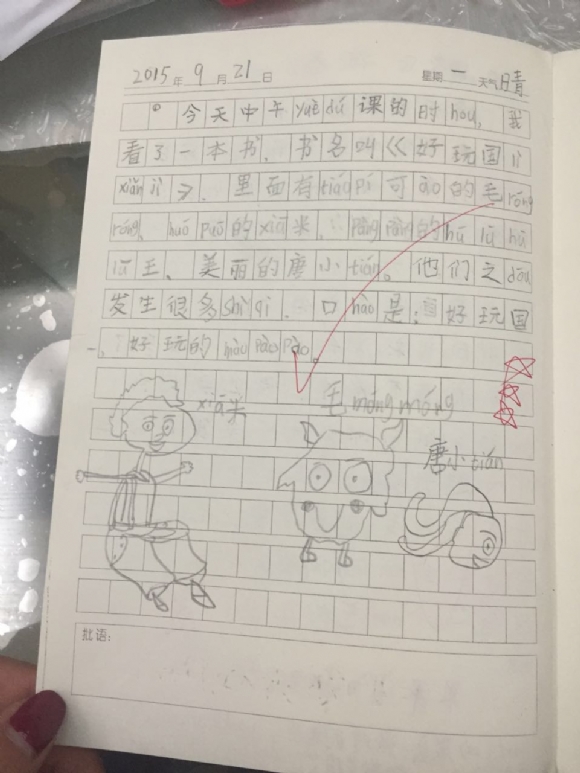 2015年9月21日 星期一 天气晴
今天中午yuè dú课的时hou,我
看了一本书,书名叫《好玩国li
xiǎn jì》,里面有tiáo pí可ào的毛róng
róng、huó pō的xiā米、pàng pàng的hú lú hú
lū王、美丽的唐小tián。他们之
发生很多shì qi,口hào是:好玩国
一,好玩的hào pào pào。
xiā米 毛móng móng
唐小tián
批语: